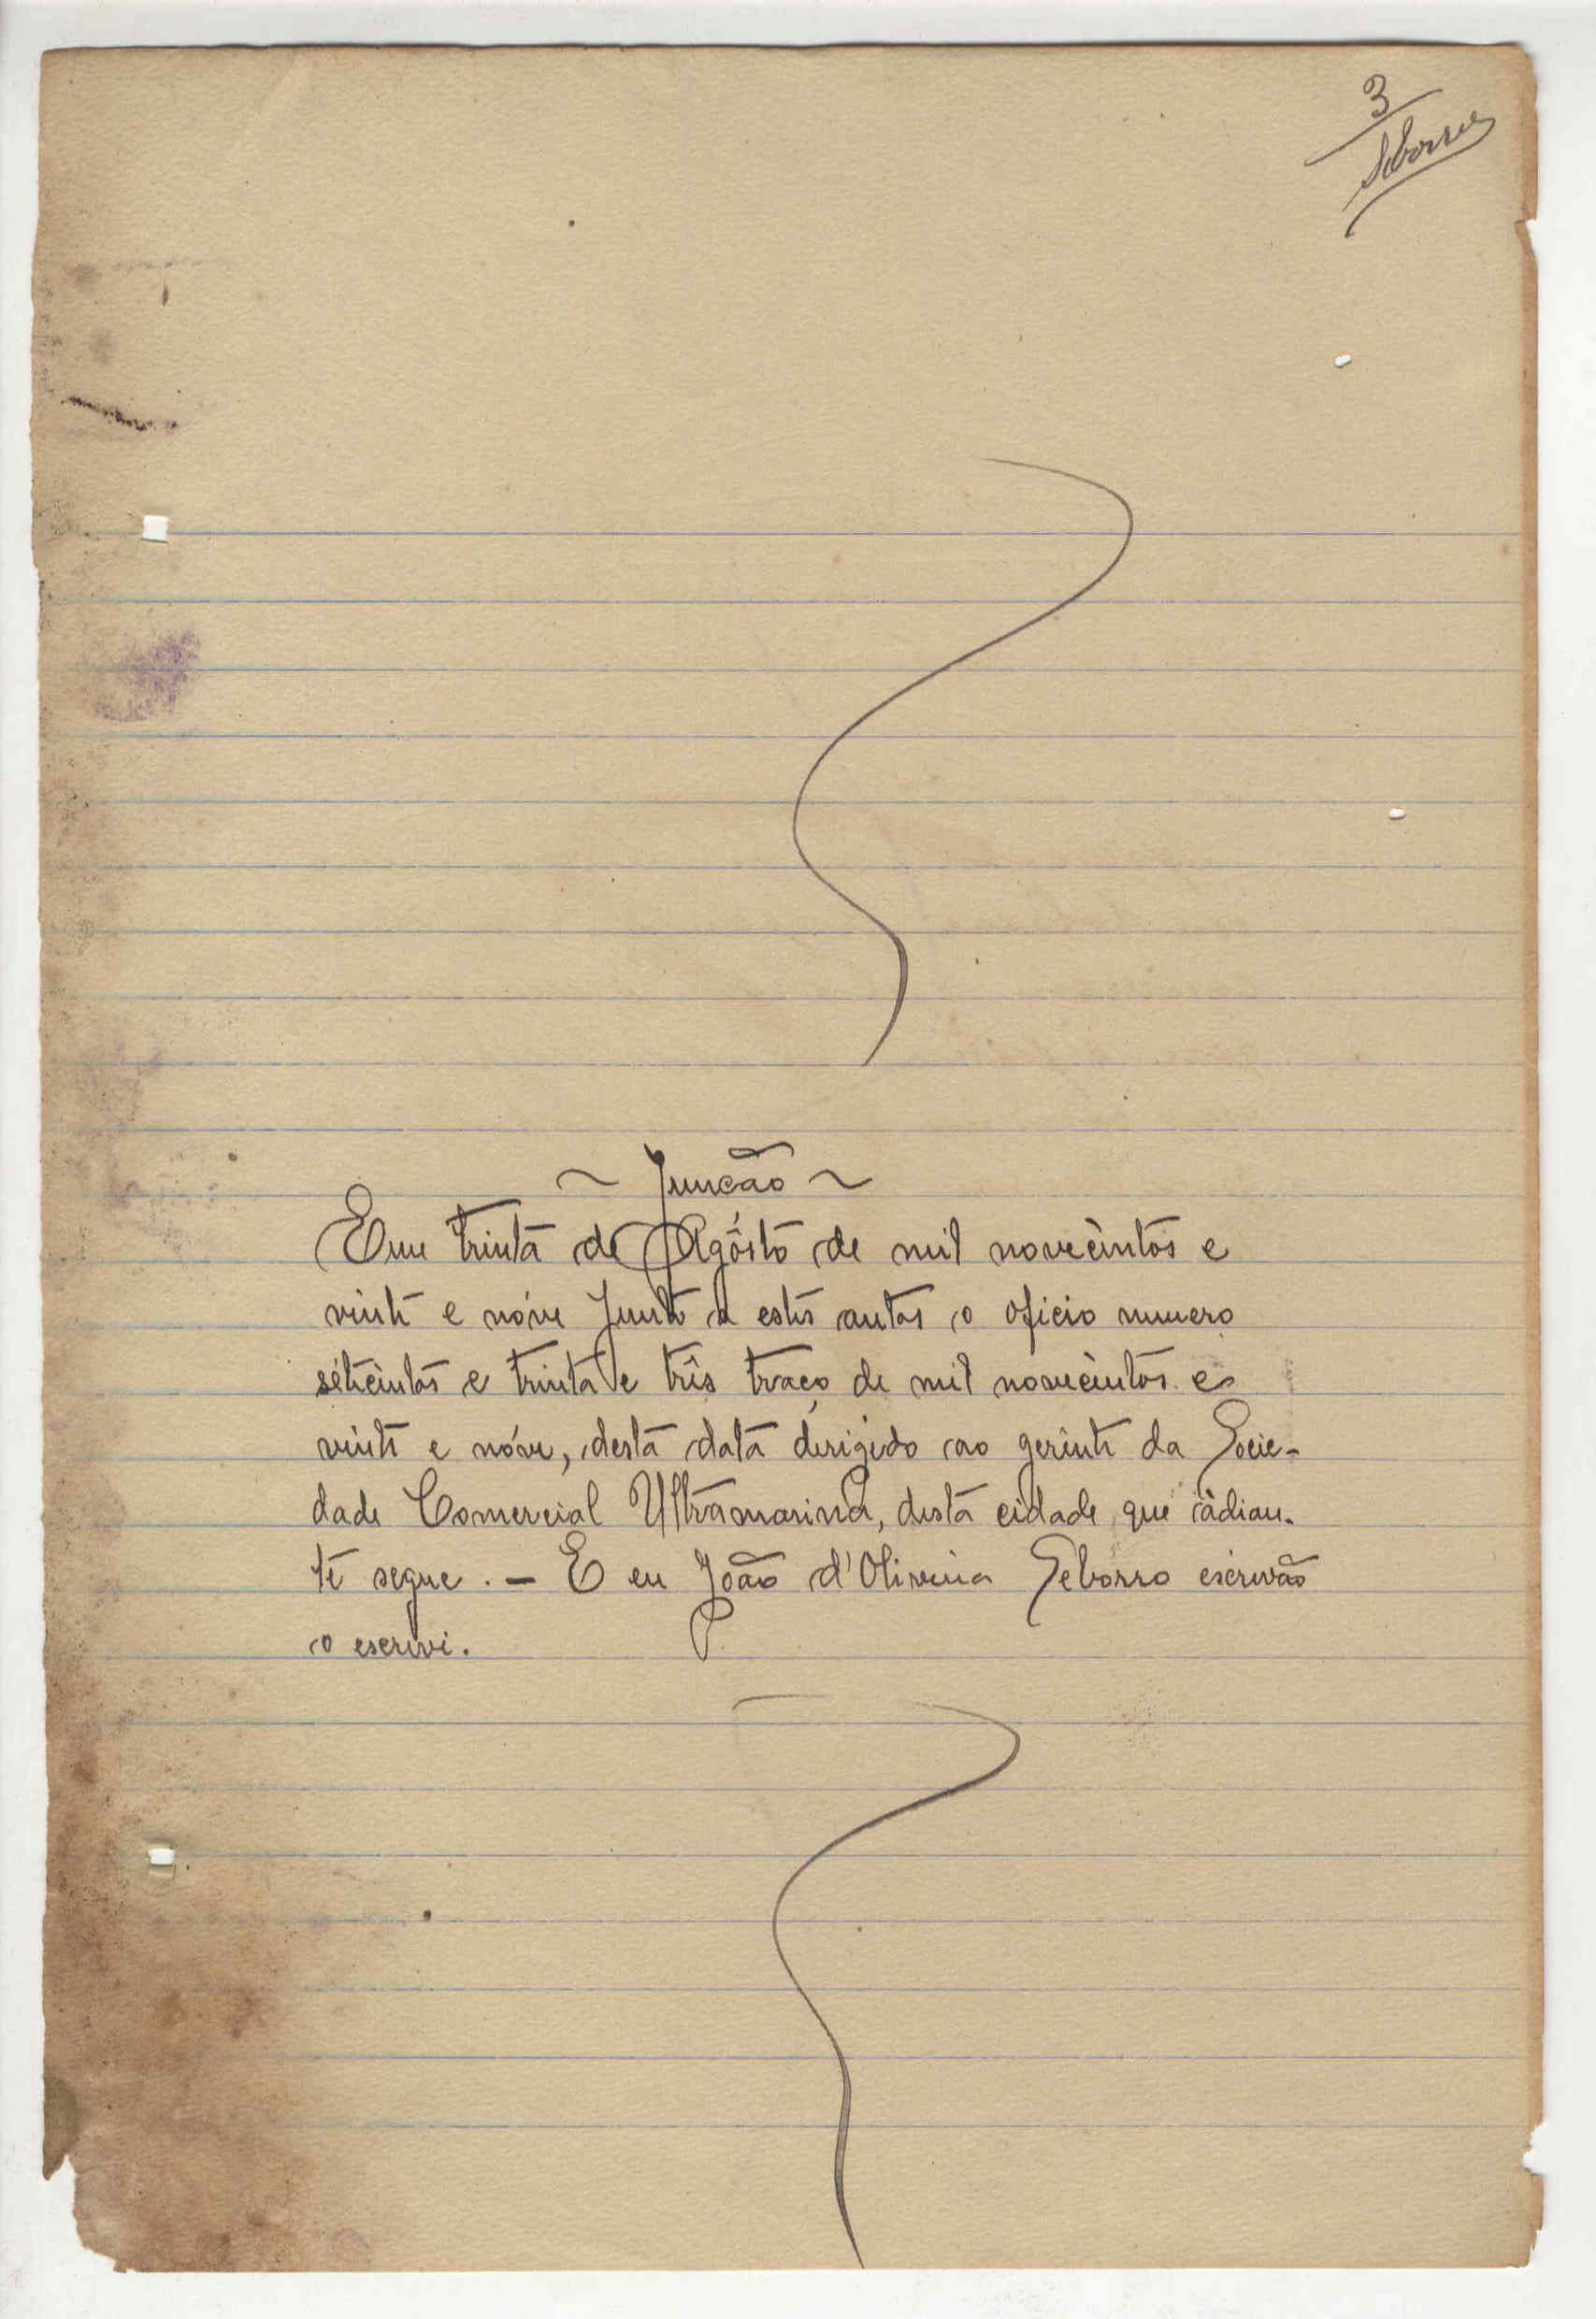 3
Seborro
~ Juncão ~
Em trinta de Agôsto de mil novecèntos e
vinte e nóve junto a estes autos o oficio numero
sétecèntos e trinta e três traço de mil novecèntos e
vinte e nóve, desta data dirigido ao gerênte da Socie-
dade Comercial Ultramarina, desta cidade que àdian-
te segue. – E eu João d'Oliveira Seborro escrivão
o escrivi.